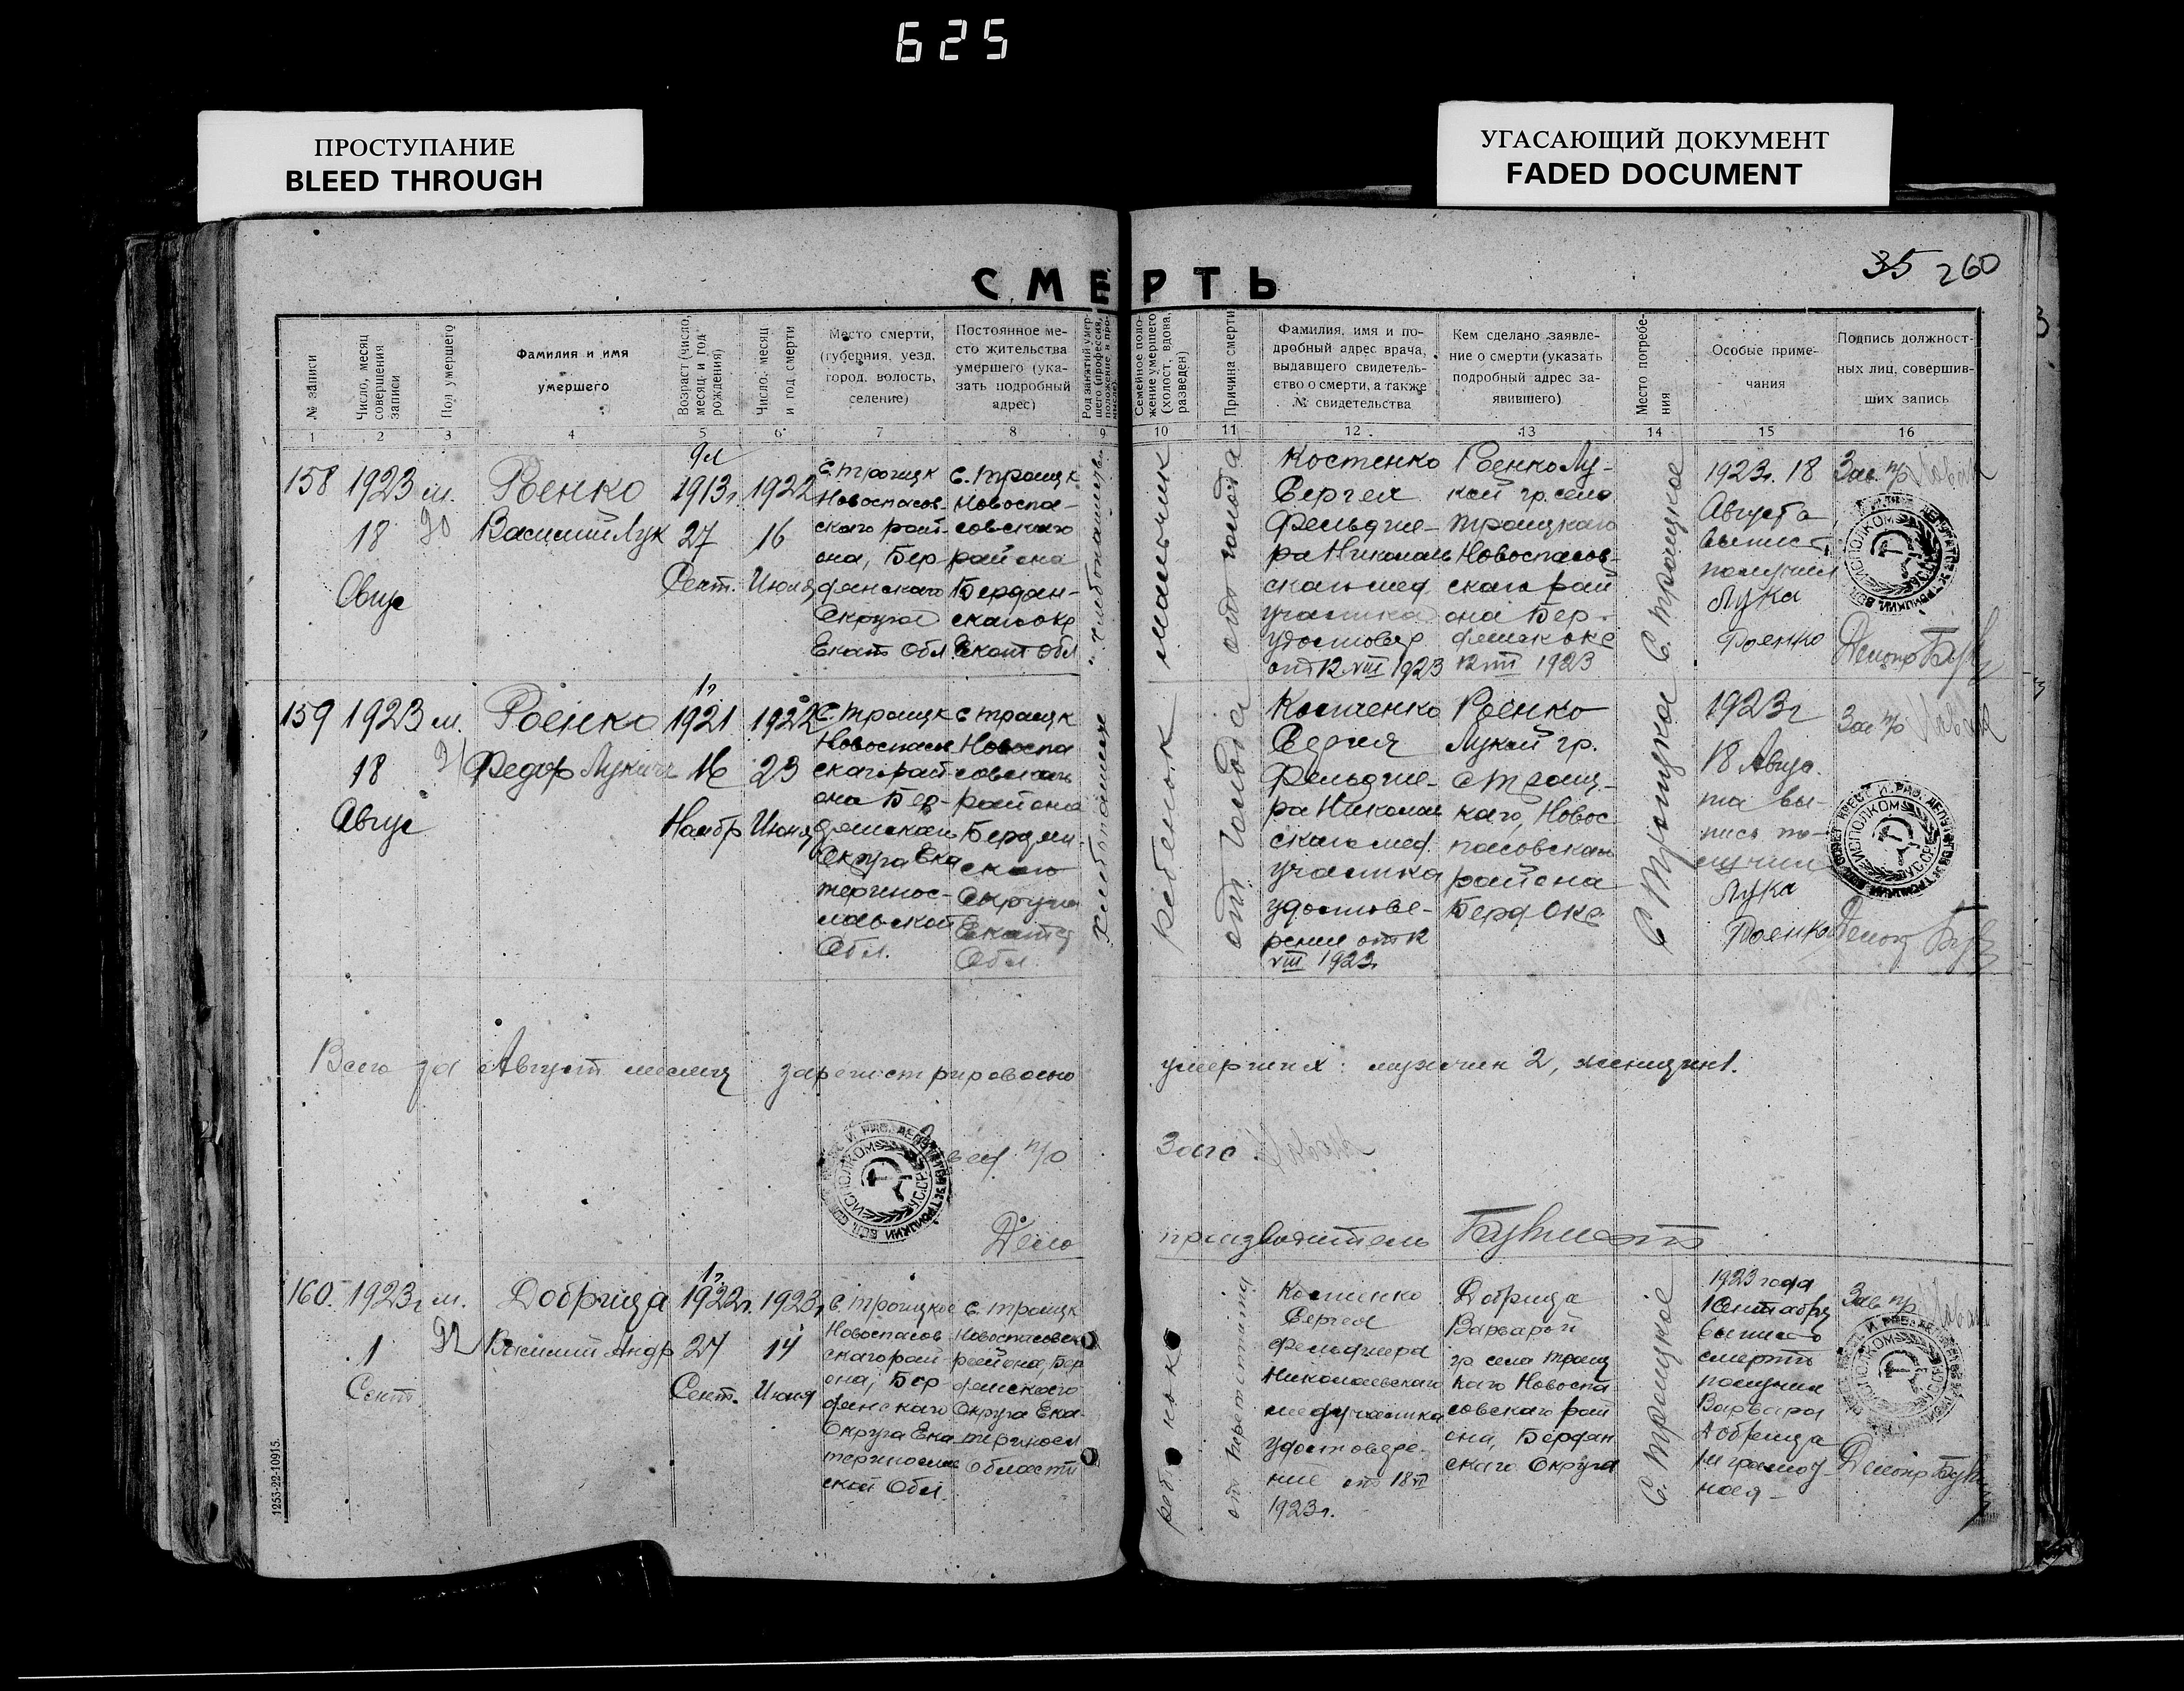 625
ПРОСТУПАНИЕ
BLEED THROUGH
УГАСАЮЩИЙ ДОКУМЕНТ
FADED DOCUMENT
35 260
СМЕРТЬ
№ записи
Число, месяц совершения записи
Пол умершего
Фамилия и имя
умершего
Возраст (число, месяц и год рождения)
Число, месяц и год смерти
Место смерти,
(губерния, уезд,
город, волость,
селение)
Постоянное ме-
сто жительства
умершего (ука-
зать подробный
адрес)
Род занятий умер-
шего (профессия,
положение в про-
мысле)
Семейное поло-
жение умершего
(холост, вдова,
разведен)
Причина смерти
Фамилия, имя и по-
дробный адрес врача,
выдавшего свидетель-
ство о смерти, а также
№ свидетельства
Кем сделано заявле-
ние о смерти (указать
подробный адрес за-
явившего)
Место погребе-
ния
Особые приме-
чания
Подпись должност-
ных лиц, совершив-
ших запись
1 2 3 4 5 6 7 8 9 10 11 12 13 14 15 16
158
1923
18
Авгус
м.
90
Роенко
Василий Лук
9л
1913г.
27
Сент.
1922
16
Июня
с. Троицк
Новоспасов-
скаго рай-
она, Бер
дянскаго
Округа
Екат Обл.
с. Троицк
Новоспа-
совскаго
района
Бердян-
скаго окр
Екат Обл
мальчик
от голода
Костенко
Сергея
Фельдше-
ра Николаев
скаго мед
участка
удостовер
от 12 VIII 1923
Роенко Лу-
кой гр. села
Троицкаго
Новоспасов-
скаго рай
она Бер-
дянск окр
12 VIII 1923
С. Троицкое
1923г. 18
Августа
выпись
получил
Лука
Роенко
Зав. п/р
Делопр
159
1923
18
Авгус
м.
91
Роенко
Федор Лукич
1г
1921
16
Ноябр
1922
23
Июня
с. Троицк
Новоспасов
скаго рай
она Бер-
дянскаго
Округа Ека
теринос-
лавской
Обл.
с Троицк
Новоспа
совскаго
района
Бердян-
скаго
Округа
Екатер
Обл.
хлебопашец
ребенок
от голода
Костенко
Сергея
Фельдше-
ра Николаев
скаго мед.
участка
удостове-
рение от 12
VIII 1923
Роенко
Лукой гр.
с Троиц-
каго, Новос
пасовскаго
района
Берд Окр.
С Троицкое
1923г
18 Авгус-
та вы-
пись по-
лучил
Лука
Роенко
Зав п/р
Делопр
Всего за Август месяц зарегистрировано умерших: мужчин 2, женщин 1.
Завед п/о Загс
Делопроизводитель
160.
1923г
1
Сент
м.
92
Добрица
Василий Андр
1г.
1922г.
27
Сент.
1923г
14
Июня
с. Троицкое
Новоспасов
скаго рай-
она, Бер-
дянскаго
Округа Ека
теринослав
ской Обл.
с. Троицк
Новоспасовск
района, Бер
дянскаго
Округа Ека-
теринослав
Области
ребенок
Костенко
Сергея
Фельдшера
Николаевскаго
медучастка
удостовере-
ние от 18
1923г.
Добрица
Варварой
гр села Троиц
каго Новоспа
совскаго рай
она, Бердян
скаго Округа
С. Троицкое
1923 года
1 Сентября
выпись о
смерти
получила
Варвара
Добрица
неграмот-
ная
Зав п/р
Делопр
ИСПОЛКОМ
1253-22-10915.